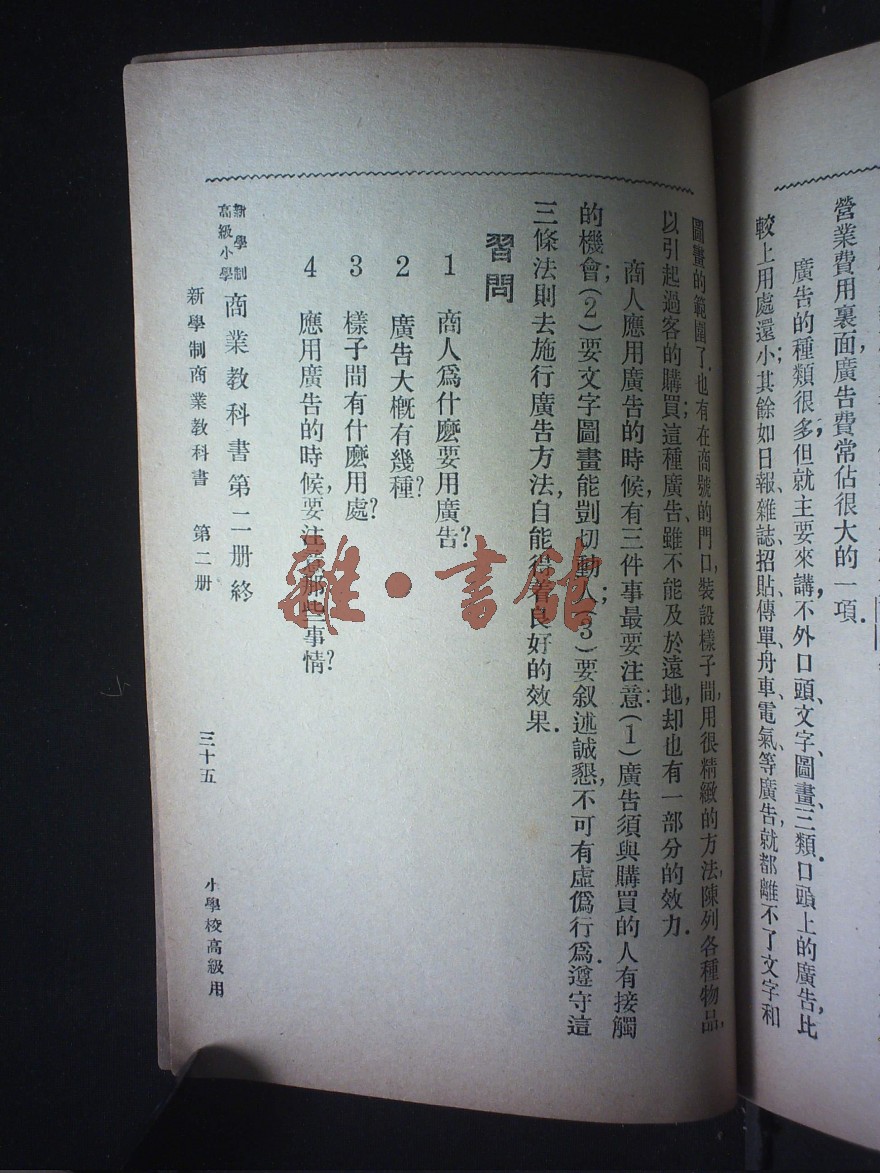 營業費用裏面,廣告費常佔很大的一項.
廣告的種類很多,但就主要來講,不外口頭、文字、圖畫、三類.口頭上的廣告,比
較上用處還小;其餘如日報、雜誌、招貼、傳單、舟車、電氣、等廣告,就都離不了文字和
圖畫的範圍了.也有在商號的門口,裝設樣子間,用很精緻的方法,陳列各種物品,
以引起過客的購買;這種廣告、雖不能及於遠地,却也有一部分的效力.
商人應用廣告的時候,有三件事最要注意:(1)廣告須與購買的人有接觸
的機會;(2)要文字圖畫能剴切動人;(3)要叙述誠懇,不可有虛僞行爲.遵守這
三條法則去施行廣告方法,自能得着良好的效果.
習問
1 商人爲什麽要用廣告?
2 廣告大槪有幾種?
3 樣子間有什麽用處?
4 應用廣告的時候,要注意那些事情?
新學制高級小學 商業教科書第二册終
新學制商業教科書 第二册 三十五 小學校高級用
雜·書館